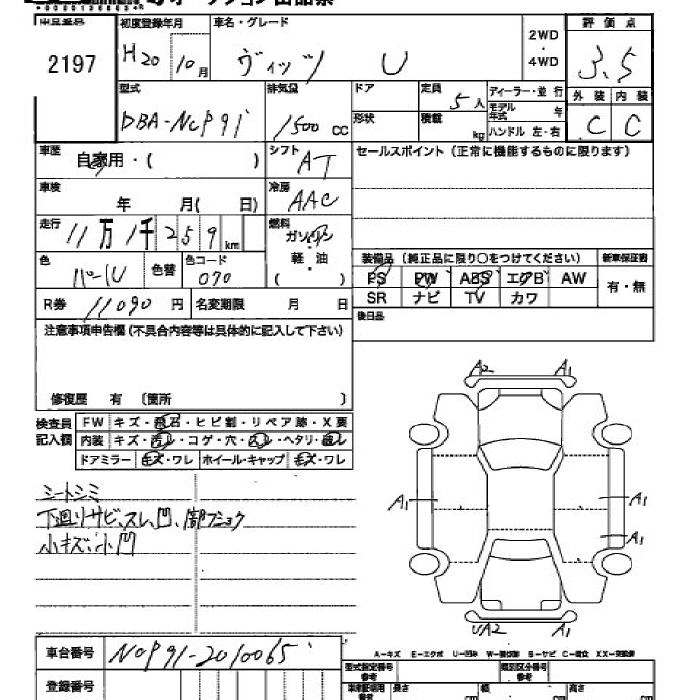 オークション出品票
車名・グレード
初度登録年月
2197
H20 年 10月
ヴィッツ U
2WD
・
4WD
評価点
3.5
外装 内装
C C
型式
DBA-NCP91
排気量
1500 CC
ドア
形状
定員
5人
積載
kg
ディーラー・並行
モデル年式 年
ハンドル 左・右
車歴
自家用・( )
シフト
AT
セールスポイント(正常に機能するものに限ります)
車検
年 月( 日)
冷房
AAC
走行
11万1千259km
燃料
ガソリン
軽・油
( )
色
パール
色替
色コード
070
装備品(純正品に限り○をつけてください)
新車保証書
PS PW ABS エアB AW
SR ナビ TV カワ
有・無
R券 11090 円
名変期限 月 日
後日品
注意事項申告欄(不具合内容等は具体的に記入して下さい)
修復歴 有 〔箇所 〕
検査員
記入欄
FW キズ・飛石・ヒビ割・リペア跡・X要
内装 キズ・汚レ・コゲ・穴・凹レ・ヘタリ・破レ
ドアミラー キズ・ワレ ホイール・キャップ キズ・ワレ
シートシミ
下廻りサビ、スレ、凹、部フショク
小キズ、小凹
A2 A1
A1 A1
A1
UA2 A1
車台番号 NCP91-2010065
登録番号
A-キズ E-エクボ U-凹み W-補修跡 S-サビ C-腐食 XX-交換跡
型式指定番号
参考
類別区分番号
参考
車検証明用
参考
長さ cm 幅 cm 高さ cm